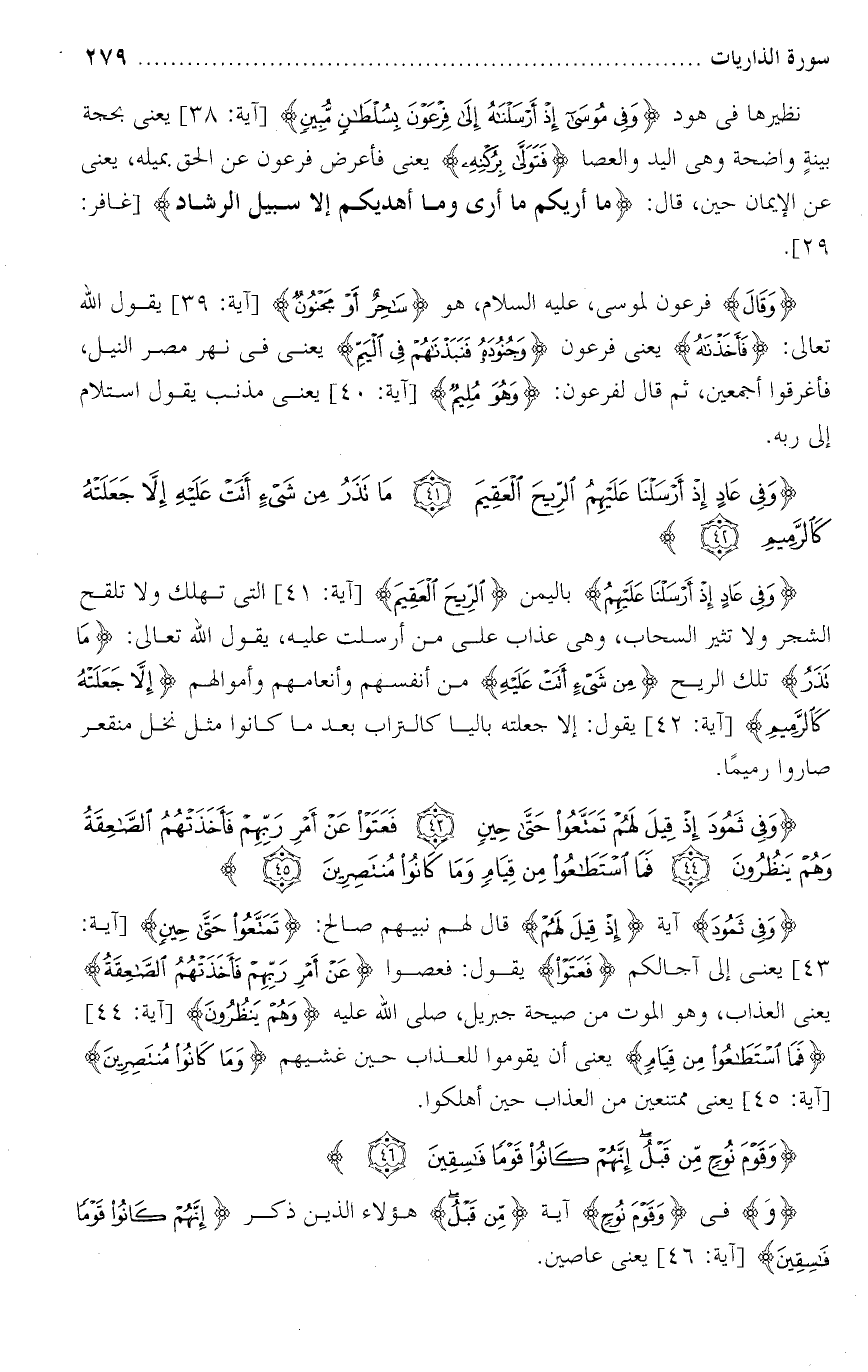 سورة الذاريات ........................................................................ ٢٧٩
نظيرها فى هود ﴿وَفِي مُوسَىٰٓ إِذْ أَرْسَلْنَٰهُ إِلَىٰ فِرْعَوْنَ بِسُلْطَٰنٍ مُّبِينٍ﴾ [آية: ٣٨] يعنى بحجة
بينةٍ واضحة وهى اليد والعصا ﴿فَتَوَلَّىٰ بِرُكْنِهِۦ﴾ يعنى فأعرض فرعون عن الحق بميله، يعنى
عن الإيمان حين، قال: ﴿ما أريكم ما أرى وما أهديكم إلا سبيل الرشاد﴾ [غافر:
٢٩].
﴿وَقَالَ﴾ فرعون لموسى، عليه السلام، هو ﴿سَٰحِرٌ أَوْ مَجْنُونٌ﴾ [آية: ٣٩] يقول الله
تعالى: ﴿فَأَخَذْنَٰهُ﴾ يعنى فرعون ﴿وَجُنُودَهُۥ فَنَبَذْنَٰهُمْ فِي ٱلْيَمِّ﴾ يعنى فى نهر مصر النيل،
فأغرقوا أجمعين، ثم قال لفرعون: ﴿وَهُوَ مُلِيمٌ﴾ [آية: ٤٠] يعنى مذنب يقول استلام
إلى ربه.
﴿وَفِي عَادٍ إِذْ أَرْسَلْنَا عَلَيْهِمُ ٱلرِّيحَ ٱلْعَقِيمَ ٤١ مَا تَذَرُ مِن شَيْءٍ أَتَتْ عَلَيْهِ إِلَّا جَعَلَتْهُ
كَٱلرَّمِيمِ ٤٢ ﴾
﴿وَفِي عَادٍ إِذْ أَرْسَلْنَا عَلَيْهِمُ﴾ باليمن ﴿ٱلرِّيحَ ٱلْعَقِيمَ﴾ [آية: ٤١] التى تهلك ولا تلقح
الشجر ولا تثير السحاب، وهى عذاب على من أرسلت عليه، يقول الله تعالى: ﴿مَا
تَذَرُ﴾ تلك الريح ﴿مِن شَيْءٍ أَتَتْ عَلَيْهِ﴾ من أنفسهم وأنعامهم وأموالهم ﴿إِلَّا جَعَلَتْهُ
كَٱلرَّمِيمِ﴾ [آية: ٤٢] يقول: إلا جعلته باليا كالتراب بعد ما كانوا مثل نخل منقعر
صاروا رميمًا.
﴿وَفِي ثَمُودَ إِذْ قِيلَ لَهُمْ تَمَتَّعُوا۟ حَتَّىٰ حِينٍ ٤٣ فَعَتَوْا۟ عَنْ أَمْرِ رَبِّهِمْ فَأَخَذَتْهُمُ ٱلصَّٰعِقَةُ
وَهُمْ يَنظُرُونَ ٤٤ فَمَا ٱسْتَطَٰعُوا۟ مِن قِيَامٍ وَمَا كَانُوا۟ مُنتَصِرِينَ ٤٥ ﴾
﴿وَفِي ثَمُودَ﴾ آية ﴿إِذْ قِيلَ لَهُمْ﴾ قال لهم نبيهم صالح: ﴿تَمَتَّعُوا۟ حَتَّىٰ حِينٍ﴾ [آية:
٤٣] يعنى إلى آجالكم ﴿فَعَتَوْا۟﴾ يقول: فعصوا ﴿عَنْ أَمْرِ رَبِّهِمْ فَأَخَذَتْهُمُ ٱلصَّٰعِقَةُ﴾
يعنى العذاب، وهو الموت من صيحة جبريل، صلى الله عليه ﴿وَهُمْ يَنظُرُونَ﴾ [آية: ٤٤]
﴿فَمَا ٱسْتَطَٰعُوا۟ مِن قِيَامٍ﴾ يعنى أن يقوموا للعذاب حين غشيهم ﴿وَمَا كَانُوا۟ مُنتَصِرِينَ﴾
[آية: ٤٥] يعنى ممتنعين من العذاب حين أهلكوا.
﴿وَقَوْمَ نُوحٍ مِّن قَبْلُ ۖ إِنَّهُمْ كَانُوا۟ قَوْمًا فَٰسِقِينَ ٤٦ ﴾
﴿وَ﴾ فى ﴿وَقَوْمَ نُوحٍ﴾ آية ﴿مِّن قَبْلُ ۖ﴾ هؤلاء الذين ذكر ﴿إِنَّهُمْ كَانُوا۟ قَوْمًا
فَٰسِقِينَ﴾ [آية: ٤٦] يعنى عاصين.